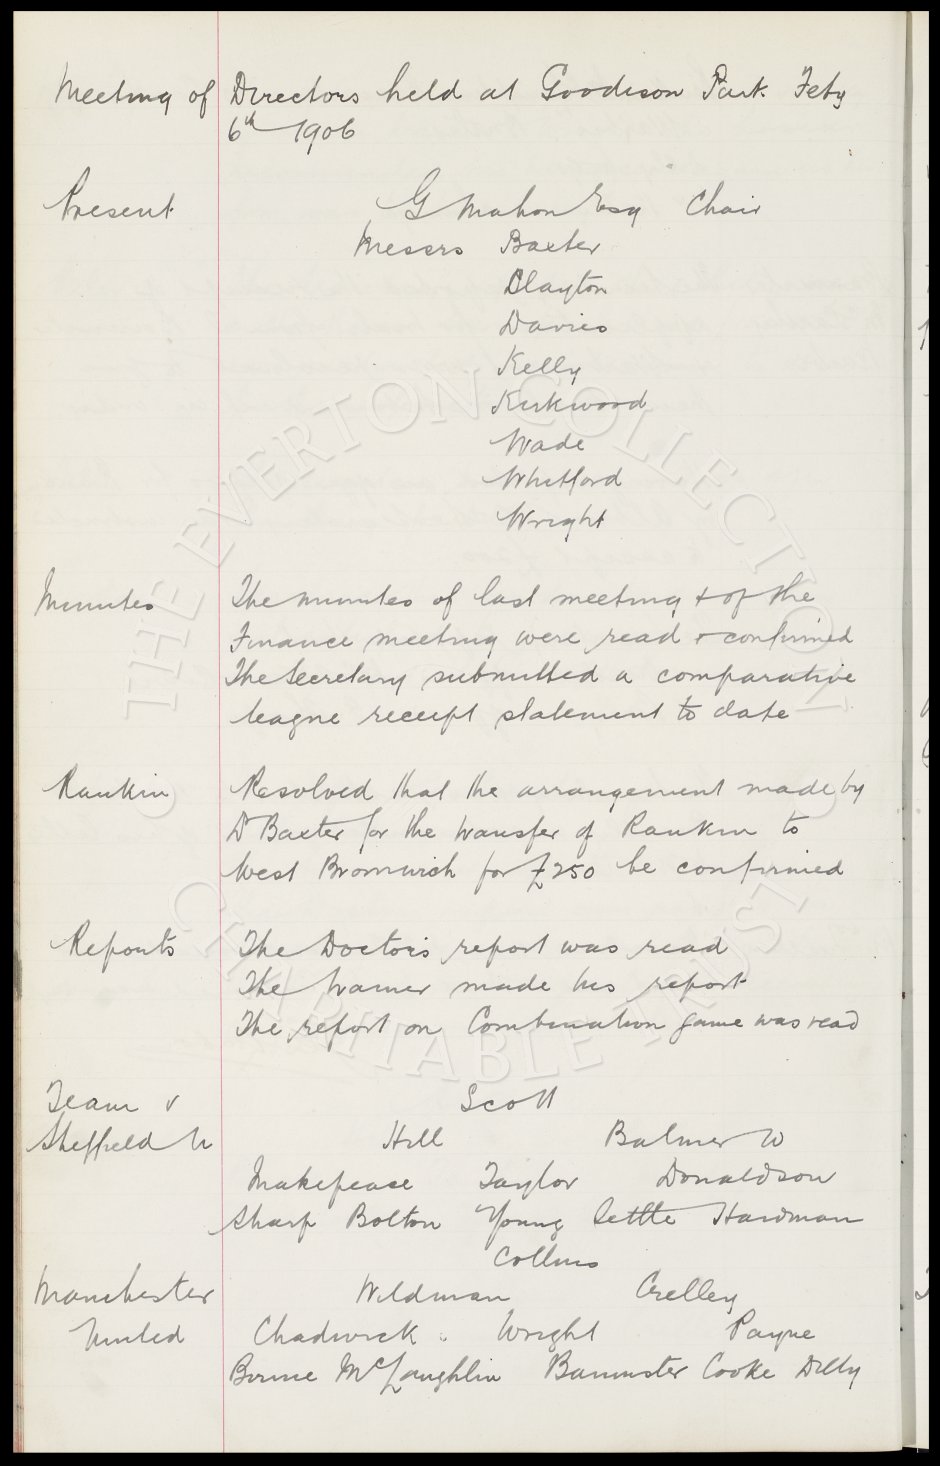 Meeting of Directors held at Goodison Park Feby
6th 1906
Present G Mahon Esq Chair
Messrs Baxter
Clayton
Davies
Kelly
Kirkwood
Wade
Whitford
Wright
Minutes The minutes of last meeting & of the
Finance meeting were read & confirmed
The Secretary submitted a comparative
league receipt statement to date
Rankin Resolved that the arrangement made by
Dr Baxter for the transfer of Rankin to
West Bromwich for £250 be confirmed
Reports The Doctor's report was read
The trainer made his report
The report on Combination game was read
Team v Scott
Sheffield U Hill Balmer W
Makepeace Taylor Donaldson
Sharp Bolton Young Settle Hardman
Collins
Manchester Wildman Crelley
United Chadwick Wright Payne
Birnie McLaughlin Bannister Cooke Dilly
THE EVERTON COLLECTION
CHARITABLE TRUST